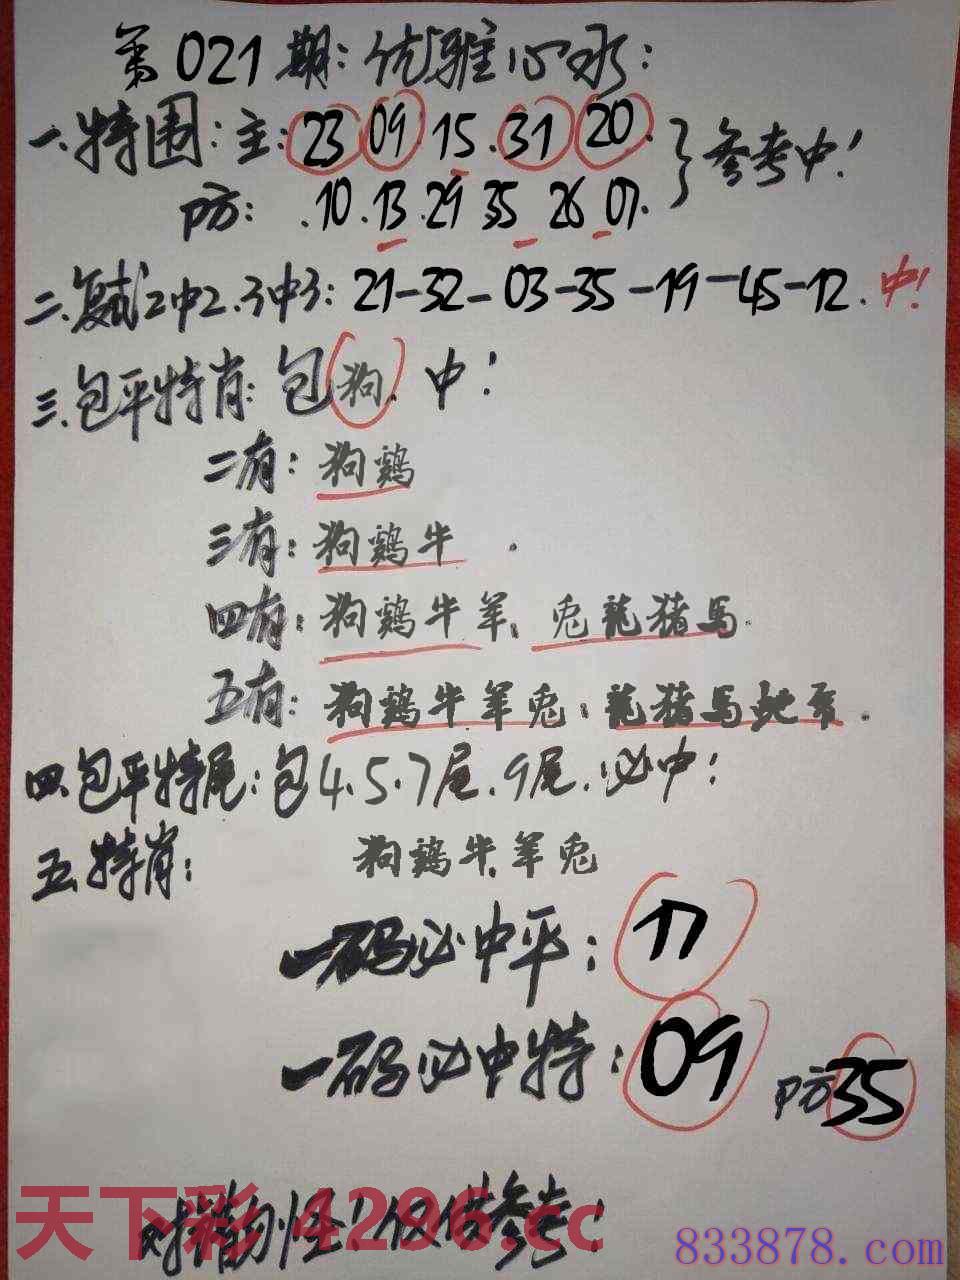 第021期：优雅心水：
一.特围：主：23 09.15.31 20. }参考中！
防：.10.13.29 35 26 07.
二.复试2中2.3中3：21-32-03-35-19-45-12.中！
三.包平特肖：包狗.中！
二有：狗鷄
三有：狗鷄牛.
四有：狗鷄牛羊、兔龍猪馬.
五有：狗鷄牛羊兔：龍猪馬蛇.
四.包平特尾：包4.5.7尾.9尾.必中！
五.特肖：狗鷄牛.羊兔
一码必中平：17
一码必中特：09 防35
对错勿怪！仅供参考！
天下彩 4296.cc
833878.com